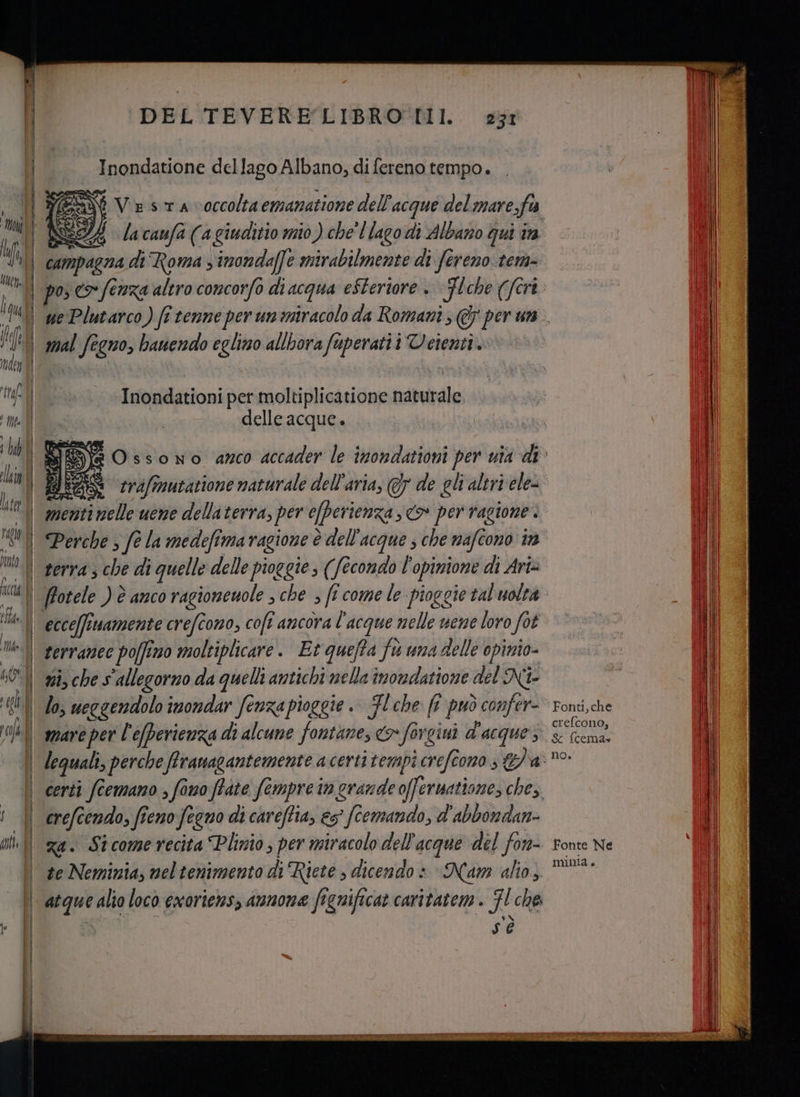 DEL TEVERE LIBRO III. 231
Inondatione del lago Albano, di sereno tempo.
Vesta occolta emanatione dell'acque del mare, fù
la causa (a giuditio mio) che'l lago di Albano qui in
campagna di Roma, inondasse mirabilmente di sereno tem-
po, & senza altro concorso di acqua esteriore. Il che (scri
ue Plutarco) si tenne per un miracolo da Romani, & per un
mal segno, hauendo eglino allhora superati i Veienti.
Inondationi per moltiplicatione naturale
delle acque.
Ossono anco accader le inondationi per uia di
trasmutatione naturale dell'aria, & de gli altri ele-
menti nelle uene della terra, per esperienza, & per ragione.
Perche, se la medesima ragione è dell'acque, che nascono in
terra, che di quelle delle pioggie, (secondo l'opinione di Ari-
stotele) è anco ragioneuole, che, si come le pioggie tal uolta
eccessiuamente crescono, così ancora l'acque nelle uene loro sot
terranee possino moltiplicare. Et questa fù una delle opinio-
ni, che s'allegorno da quelli antichi nella inondatione del Ni-
lo, ueggendolo inondar senza pioggie. Il che si può confer-
mare per l'esperienza di alcune fontane, & sorgiui d'acque;
lequali, perche strauagantemente a certi tempi crescono, & a
certi scemano, sono state sempre in grande osseruatione, che,
crescendo, sieno segno di carestia, es' scemando, d'abbondan-
za. Si come recita Plinio, per miracolo dell'acque del fon-
te Neminia, nel tenimento di Riete, dicendo: Nam alio,
atque alio loco exoriens, annonæ significat caritatem. Il che
s'è
Fonti, che
crescono,
& scema-
no.
Fonte Ne
minia.